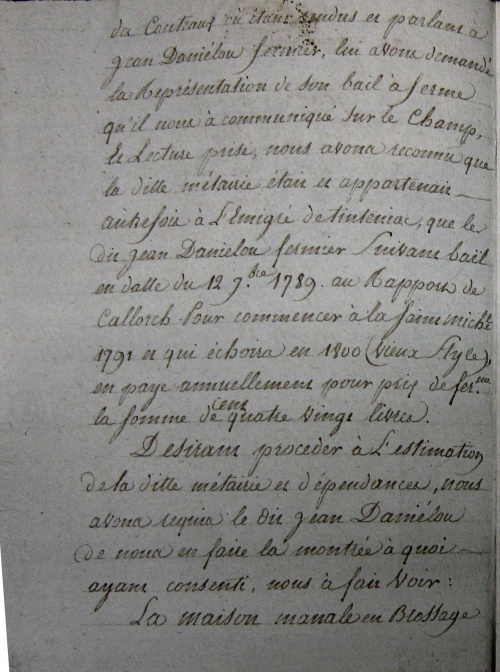 du Contraux où étant rendus et parlant a
jean Daniélou fermier, lui avons demandé
la Représentation de son bail à ferme
qu'il nous à communiqué sur le Champ,
Et Lecture prise, nous avons reconnu que
la ditte métairie était et appartenait
autrefois à L'Emigré de tinteniac, que le
dit jean Danielou fermier Suivant bail
en datte du 12 7.bre 1789. au Rapport de
Callorch Pour commencer à la saint michel
1791 et qui échoira en 1800 (vieux Style),
en paye annuellement pour prix de fer.me
la somme de cent quatre vingt livres.
Desirant proceder à L'estimation
de la ditte métairie et dépendances, nous
avons requis le dit jean Daniélou
de nous en faire la montrée à quoi
ayant consenti, nous à fait voir :
La maison manale en Brossage